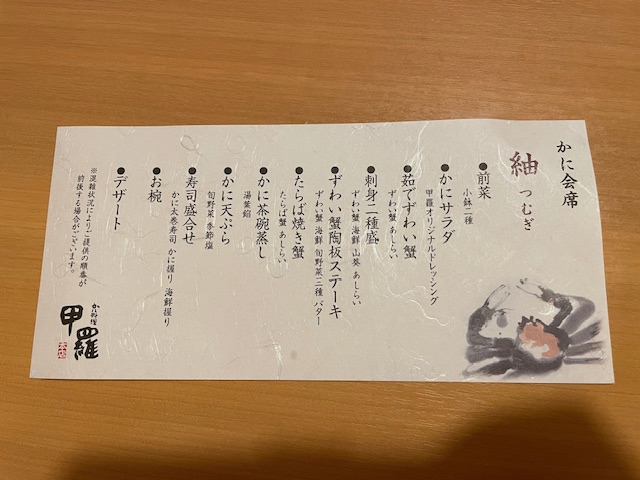 かに会席
紬 つむぎ
●前菜
小鉢二種
●かにサラダ
甲羅オリジナルドレッシング
●茹でずわい蟹
ずわい蟹 あしらい
●刺身二種盛
ずわい蟹 海鮮 山葵 あしらい
●ずわい蟹陶板ステーキ
ずわい蟹 海鮮 旬野菜三種 バター
●たらば焼き蟹
たらば蟹 あしらい
●かに茶碗蒸し
湯葉餡
●かに天ぷら
旬野菜 季節塩
●寿司盛合せ
かに太巻寿司 かに握り 海鮮握り
●お椀
●デザート
※混雑状況によりご提供の順番が
前後する場合がございます。
かに料理
甲羅
本店